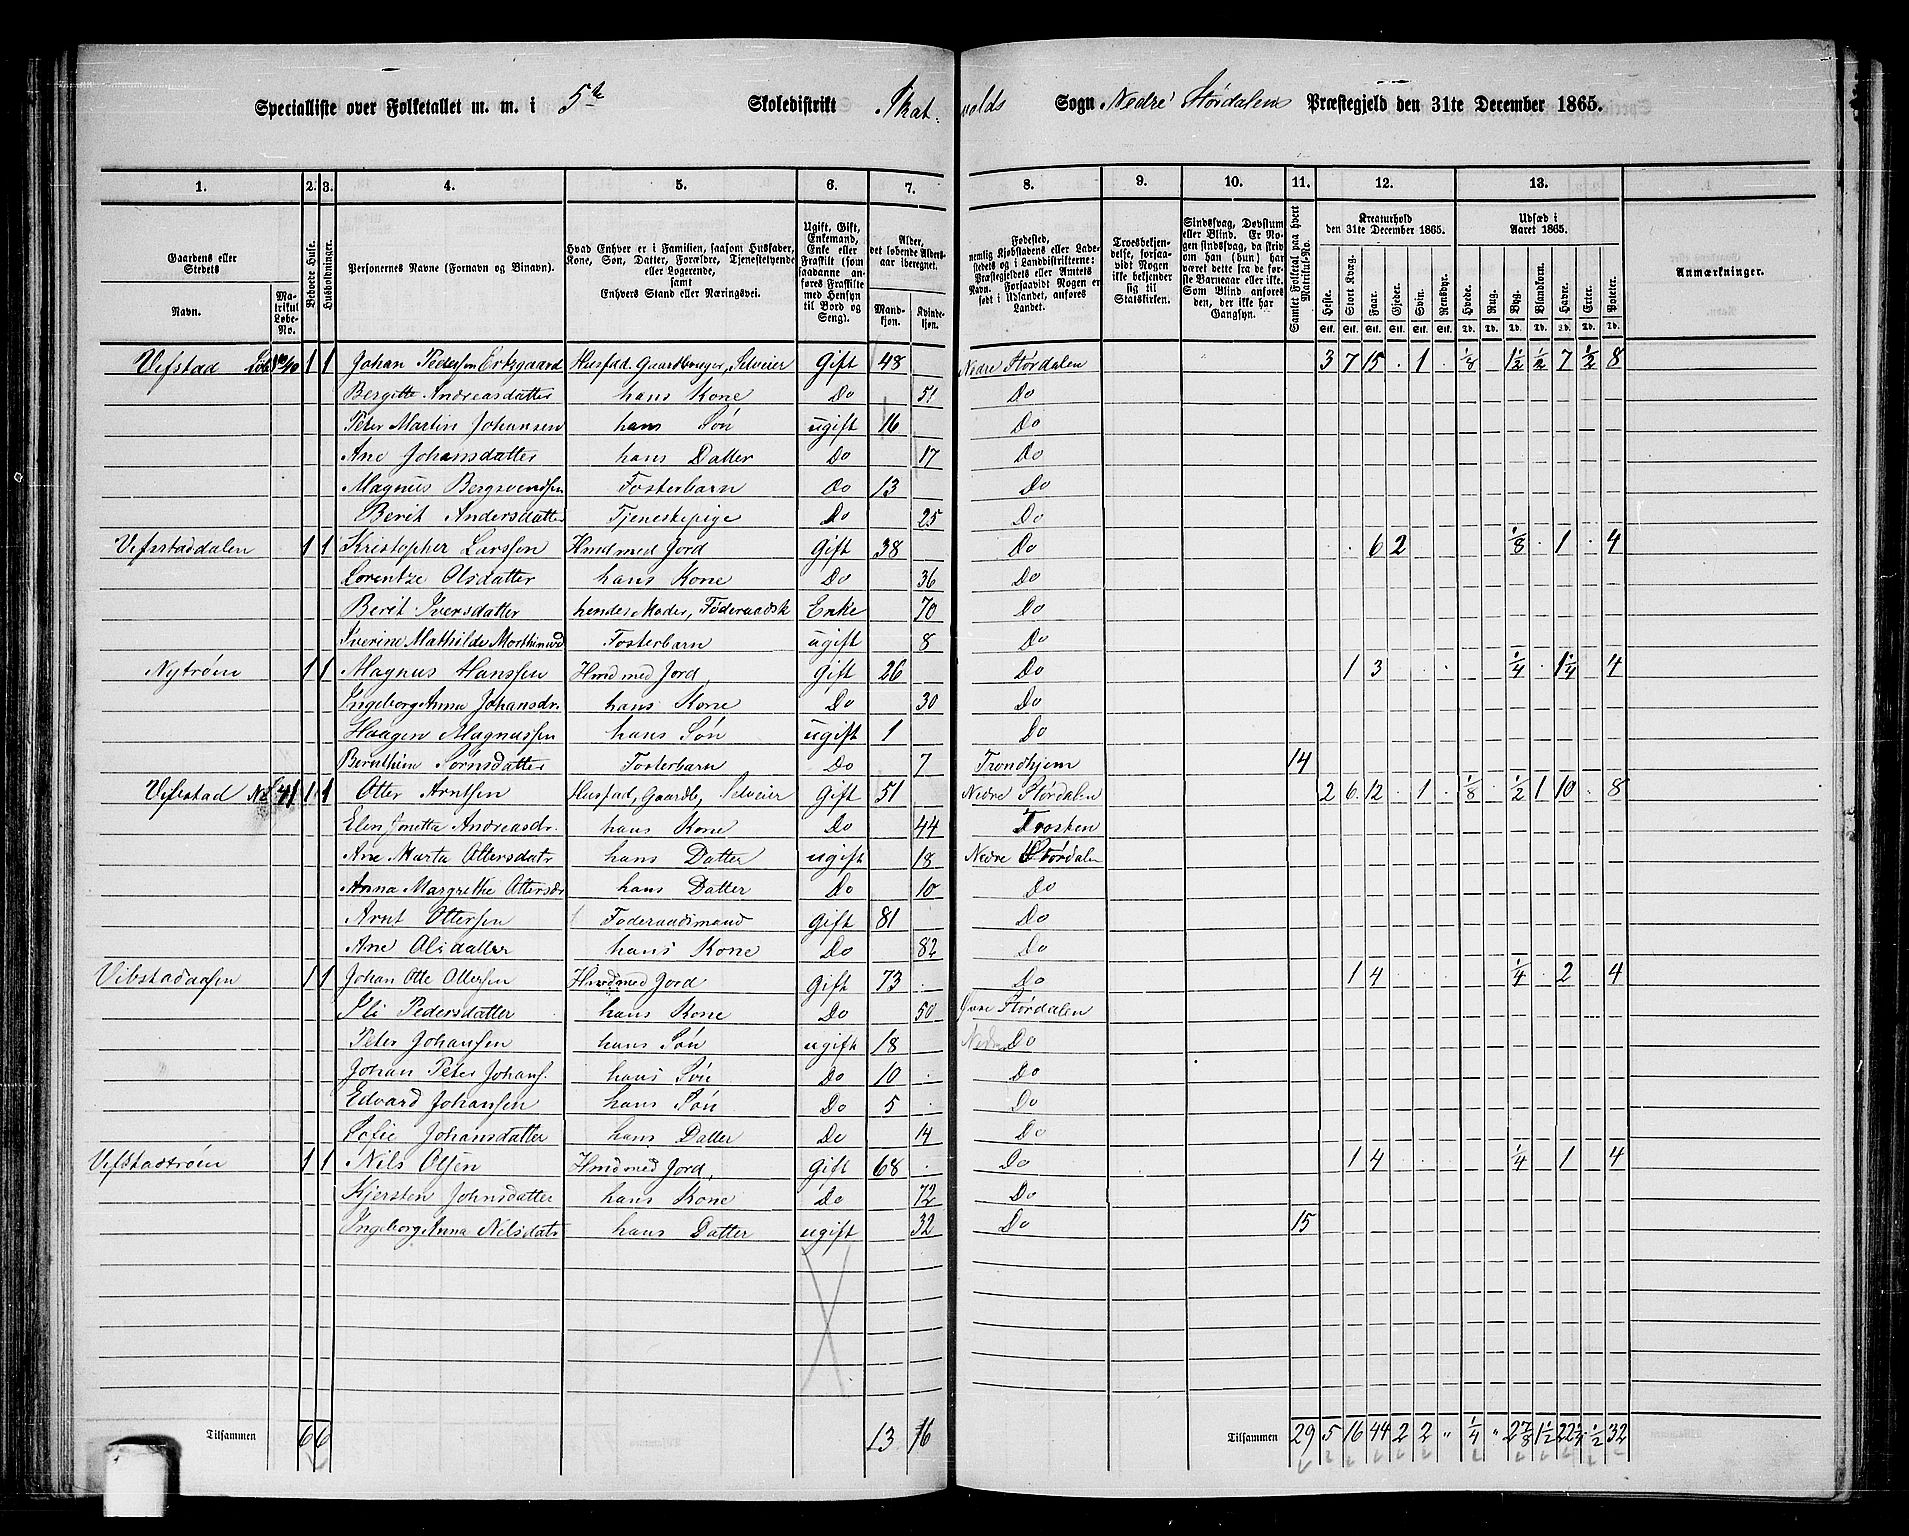 Specialliste over Folketallet m. m. i 5te Skoledistrikt Skatvolds Sogn Nedre Størdalens Præstegjeld den 31te December 1865.
1. 2. 3. 4. 5. 6. 7. 8. 9. 10. 11. 12. 13.
Gaardens eller Stedets Navn. Matrikul Løbe-No. Beboede Huse. Husholdninger. Personernes Navne (Fornavn og Binavn). Hvad Enhver er i Familien, saasom Husfader, Kone, Søn, Datter, Forældre, Tjenestetyende eller Logerende, samt Enhvers Stand eller Næringsvei. Ugift, Gift, Enkemand, Enke eller Fraskilt (som saadanne anføres Fraskilte med Hensyn til Bord og Seng). Alder, det løbende Alders-aar iberegnet. Mandkjøn. Kvindekjøn. Fødested, nemlig Kjøbstadens eller Ladestedets og i Landdistrikterne: Præstegjeldets eller Amtets Navn. Forsaavidt Nogen er født i Udlandet, anføres Landet. Troesbekjendelse, forsaavidt Nogen ikke bekjender sig til Statskirken. Sindssvag, Døvstum eller Blind. Er Nogen sindssvag, da skrives om han (hun) har været dette fra de første Barneaar eller ikke. Som Blind anføres den, der ikke har Gangsyn. Samlet Folketal paa hvert Matrikul-No. Kreaturhold den 31te December 1865. Heste. Stort Kvæg. Faar. Gjeder. Svin. Rensdyr. Udsæd i Aaret 1865. Hvede. Rug. Byg. Blandkorn. Havre. Erter. Poteter. Anmærkninger.
Vefstad 40 1 1 Johan Pedersen Ertsgaard Husfad. Gaardbruger, Selveier Gift 48 Nedre Størdalen 3 7 15 . 1 . 1/8 . 1 1/2 1/2 7 1/2 8
Bergitte Andreasdatter hans Kone Do 51 Do
Peter Martin Johansen hans Søn ugift 16 Do
Ane Johansdatter hans Datter Do 17 Do
Magnus Bergsvendsen Fosterbarn Do 13 Do
Berit Andersdatter Tjenestepige Do 25 Do
Vefstaddalen 1 1 Kristopher Larssen Hmd med Jord Gift 38 Do 6 2 1/8 . 1 . 4
Lorentze Olsdatter hans Kone Do 36 Do
Berit Iversdatter hendes Moder, Føderaadsk Enke 70 Do
Iverine Mathilde Morthinusd Fosterbarn ugift 8 Do
Nytrøen 1 1 Magnus Hanssen Hmd med Jord, Gift 26 Do 1 3 1/4 . 1 1/4 4
Ingeborg Anna Johansdr. hans Kone Do 30 Do
Haagen Magnussen hans Søn ugift 1 Do
Sørnsdatter Fosterbarn Do 7 Trondhjem 14
Vefstad 41 1 1 Otter Arntsen Husfad, Gaardb, Selveier Gift 51 Nedre Størdalen 2 6 12 . 1 . 1/8 . 1/2 1 10 . 8
Elen Jonetta Andreasdr. hans Kone Do 44 Frosten
Ane Marta Ottersdatr hans Datter ugift 18 Nedre Størdalen
Anna Margrethe Ottersdr hans Datter Do 10 Do
Arnt Ottersen Føderaadsmand Gift 81 Do
Ane Olsdatter hans Kone Do 82 Do
Vibstadaasen 1 1 Johan Otte Ottersen Hmd med Jord Gift 73 Do 1 4 1/4 . 2 . 4
Eli Pedersdatter hans Kone Do 50 Øvre Størdalen
Peter Johansen hans Søn ugift 18 Nedre Do
Johan Peter Johans. hans Søn Do 10 Do
Edvard Johansen hans Søn Do 5 Do
Sofie Johansdatter hans Datter Do 14 Do
Vefstastrøen 1 1 Nils Olsen Hmd med Jord, Gift 68 Do 1 4 1/4 . 1 . 4
Kjersten Johnsdatter hans Kone Do 72 Do
Ingeborg Anna Nilsdatr hans Datter ugift 32 Do 15
Tilsammen 6 6 13 16 Tilsammen 29 5 16 44 2 2 " 1/4 " 2 7/8 1 1/2 1/2 32